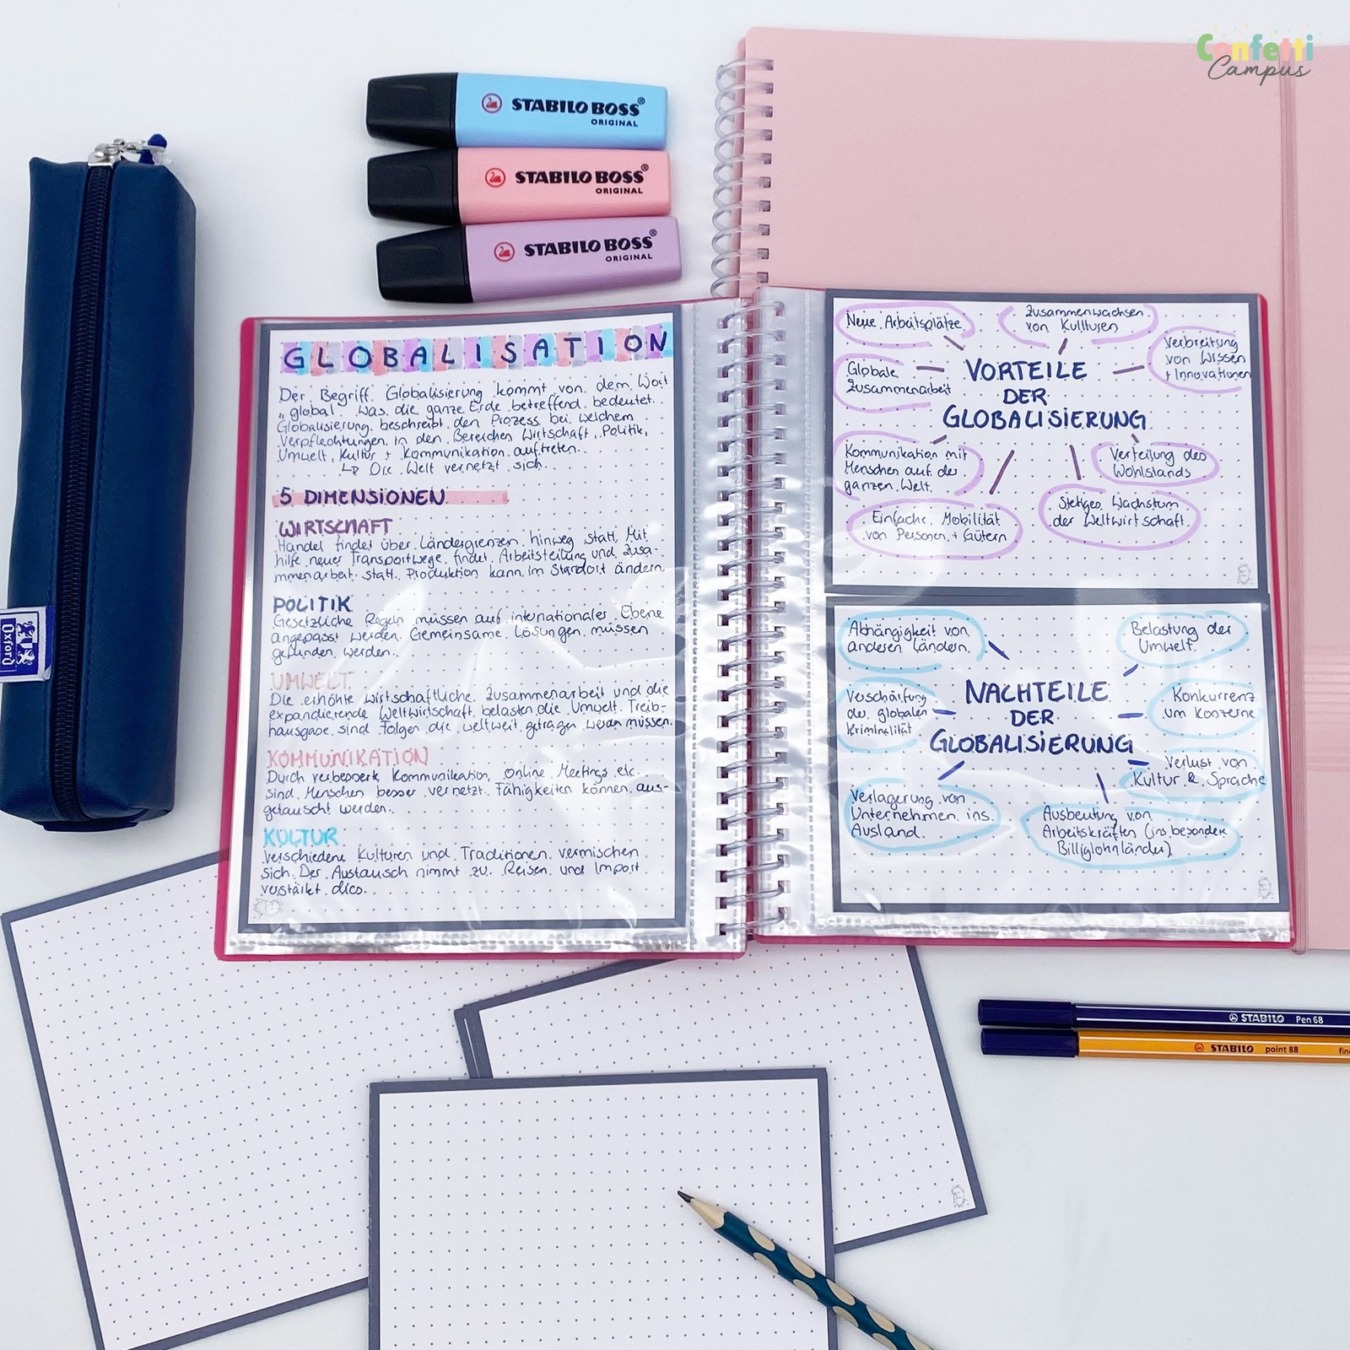 Confetti
Campus
STABILO BOSS®
ORIGINAL
STABILO BOSS®
ORIGINAL
STABILO BOSS®
ORIGINAL
Oxford
GLOBALISATION
Der Begriff Globalisierung kommt von dem Wort
„global". Was die ganze Erde betreffend bedeutet.
Globalisierung beschreibt den Prozess bei welchem
Verpflechtungen in den Bereichen Wirtschaft, Politik,
Umwelt, Kultur + Kommunikation auftreten.
↳ Die Welt vernetzt sich.
5 DIMENSIONEN
WIRTSCHAFT
Handel findet über Ländergrenzen hinweg statt. Mit
hilfe neuer Transportwege findet Arbeitsteilung und Zusa-
mmenarbeit statt. Produktion kann im Standort ändern.
POLITIK
Gesetzliche Regeln müssen auf internationales Ebene
angepasst werden. Gemeinsame Lösungen müssen
gefunden werden.
UMWELT
Die erhöhte wirtschaftliche Zusammenarbeit und die
expandierende Weltwirtschaft belasten die Umwelt. Treib-
hausgase sind Folgen die weltweit getragen werden müssen.
KOMMUNIKATION
Durch verbesserte Kommunikation, online Meetings etc.
sind Menschen besser vernetzt. Fähigkeiten können aus-
getauscht werden.
KULTUR
Verschiedene Kulturen und Traditionen vermischen
sich. Der Austausch nimmt zu. Reisen und Import
verstärkt dies.
Neue Arbeitsplätze
Zusammenwachsen
von Kulturen
Verbreitung
von Wissen
+ Innovationen
Globale
Zusammenarbeit
VORTEILE
DER
GLOBALISIERUNG
Kommunikation mit
Menschen auf der
ganzen Welt.
Verteilung des
Wohlstands
Einfache Mobilität
von Personen + Gütern
Stetiges Wachstum
der Weltwirtschaft.
Abhängigkeit von
anderen Ländern.
Belastung der
Umwelt.
Verschärfung
der globalen
Kriminalität
NACHTEILE
DER
GLOBALISIERUNG
Konkurrenz
um Konzerne
Verlust von
Kultur & Sprache
Verlagerung von
Unternehmen ins
Ausland.
Ausbeutung von
Arbeitskräften (insbesondere
Billiglohnländer)
STABILO Pen 68
STABILO point 88